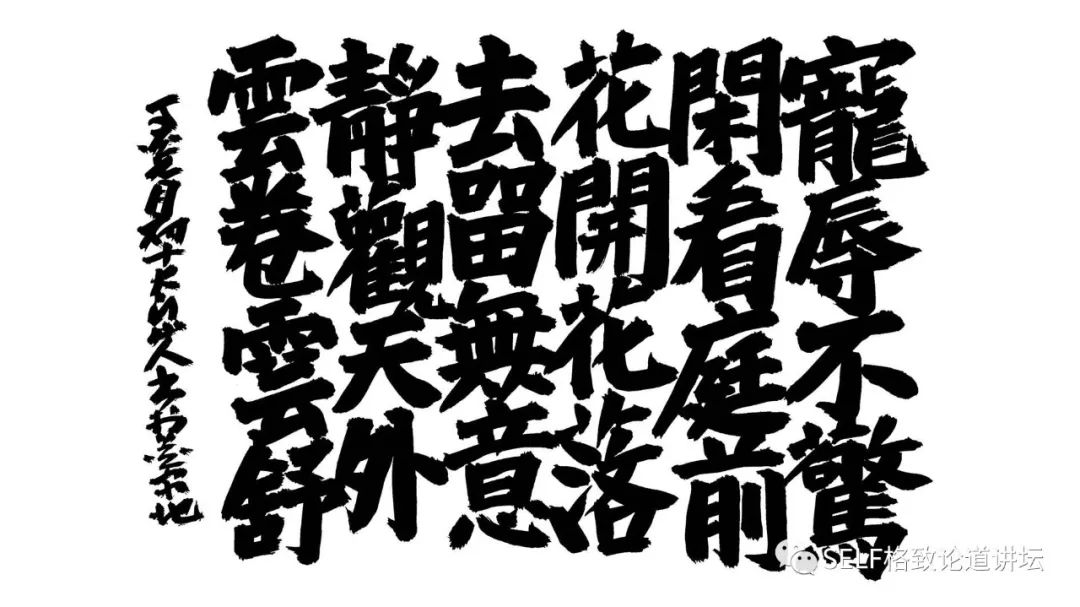 寵辱不驚
閑看庭前
花開花落
去留無意
靜觀天外
雲卷雲舒
SELF格致论道讲坛